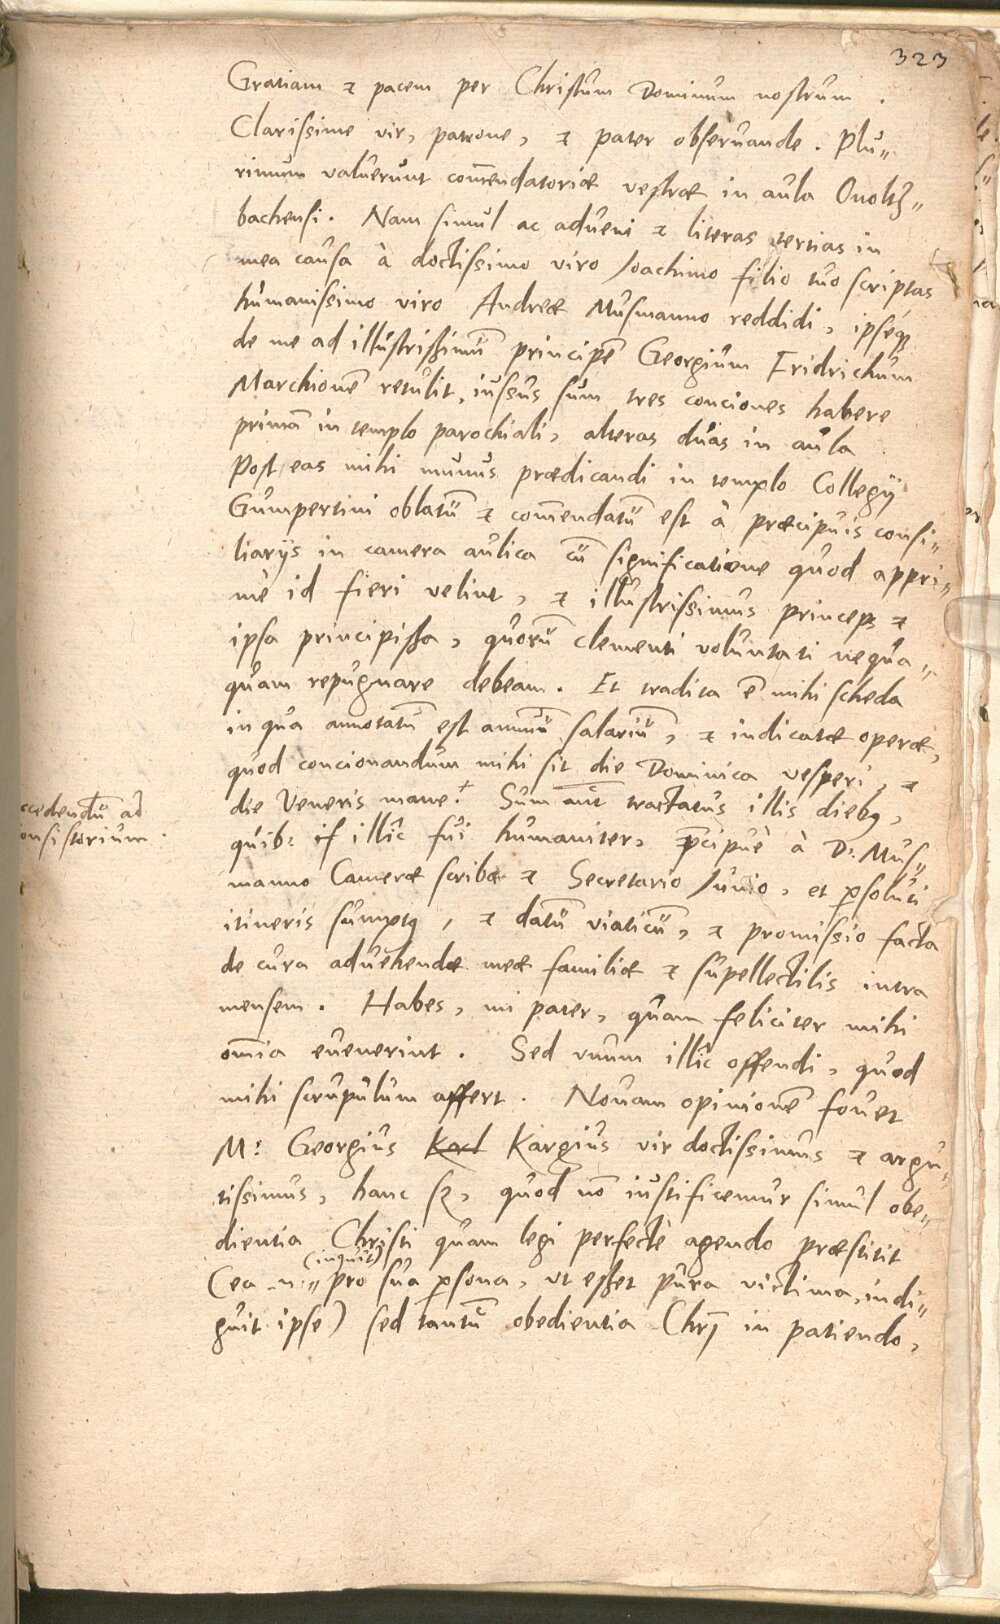 323
Gratiam & pacem per Christum Dominum nostrum.
Clarissime vir, patrone, & pater observande. Plu„
rimum valuerunt com̄endatoriæ vestræ in aula Onoltz„
bachensi. Nam simul ac adveni & literas tertias in
mea causa à doctissimo viro Joachimo filio tuo scriptas
humanissimo viro Andreæ Musmanno reddidi, ipséq;
de me ad illustrißimū principē Georgium Fridrichum
Marchionē retulit, iussus sum tres conciones habere
primā in templo parochiali, alteras duas in aula
Post eas mihi munus prædicandi in templo Collegij
Gumpertini oblatū & com̄endatū est à præcipuis consi„
liarijs in camera aulica cū significatione quod appri„
mè id fieri velint, & illustrissimus princeps &
ipsa principißa, quorū clementi voluntati nequa„
quam repugnare debeam. Et tradita ē mihi scheda
in qua annotatū est annuū salariū, & indicatæ operæ,
quod concionandum mihi sit die Dominica vesperi, &
die Veneris mane.† Sum aūt tractatus illis diebꝫ,
ccedendū ad
onsistorium.
quib: if illic fui humaniter, p̄cipuè à D: Mus„
manno Cameræ scriba & Secretario Junio, et ꝑsoluti
itineris sumptꝫ, & datū viaticū, & promissio facta
de cura advehendæ meæ familiæ & supellectilis intra
mensem. Habes, mi pater, quam feliciter mihi
om̄ia evenerint. Sed unum illic offendi, quod
mihi scrupulum affert. Novam opinionē fovet
M: Georgius Karl Kargius vir doctissimus & argu„
tissimus, hanc sꝫ, quod nō iustificemur simul obe„
dientia Christi quam legi perfectè agendo præstitit
(inquit)
(ea n: „ pro sua ꝑsona, ut eßet pura victima, indi„
guit ipse) sed tantū obedientia Chrj̄ in patiendo,